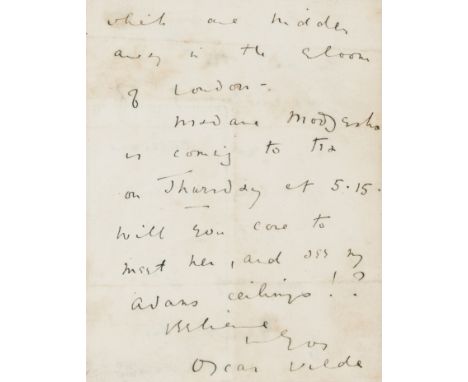 which are hidden
away in the gloom
of London -
Madame Modjeska
is coming to tea
on Thursday at 5.15.
Will you care to
meet her, and see my
Adams ceilings!?
Believe me
Yrs
Oscar Wilde